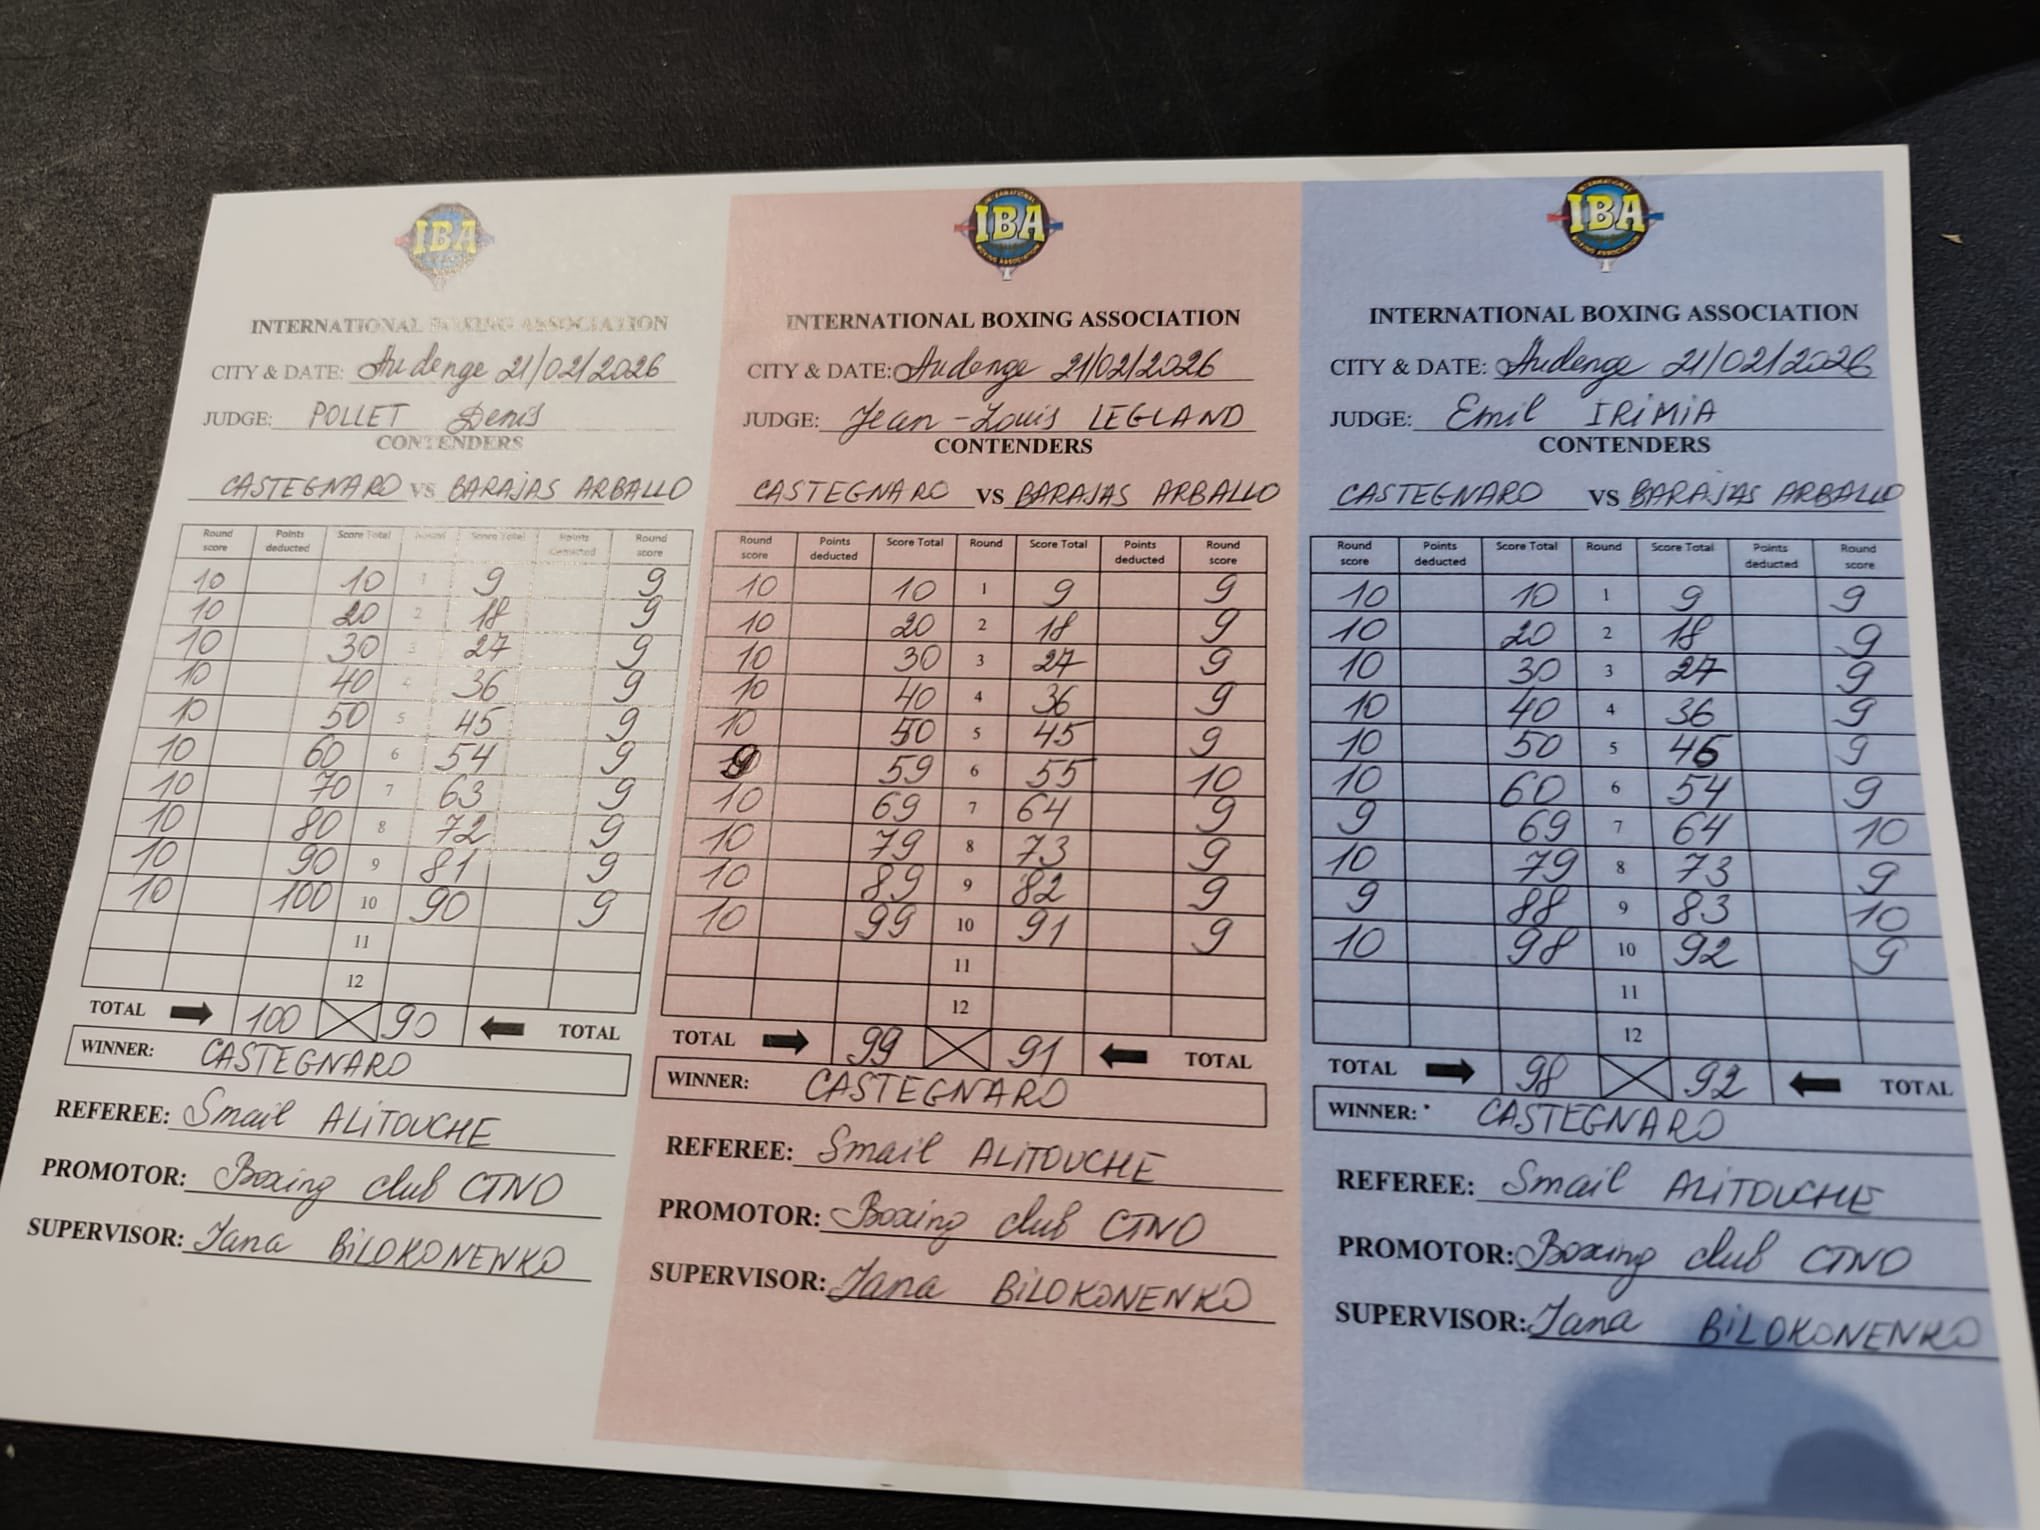 IBA
INTERNATIONAL BOXING ASSOCIATION
CITY & DATE: Audenge 21/02/2026
JUDGE: POLLET Denis
CONTENDERS
CASTEGNARO VS BARAJAS ARBALLO
Round score Points deducted Score Total Round Score Total Points deducted Round score
10 10 1 9 9
10 20 2 18 9
10 30 3 27 9
10 40 4 36 9
10 50 5 45 9
10 60 6 54 9
10 70 7 63 9
10 80 8 72 9
10 90 9 81 9
10 100 10 90 9
11
12
TOTAL 100 90 TOTAL
WINNER: CASTEGNARO
REFEREE: Smail ALITOUCHE
PROMOTOR: Boxing club CTNO
SUPERVISOR: Iana BILOKONENKO
IBA
INTERNATIONAL
BOXING ASSOCIATION
INTERNATIONAL BOXING ASSOCIATION
CITY & DATE: Audenge 21/02/2026
JUDGE: Jean-Louis LEGLAND
CONTENDERS
CASTEGNARO VS BARAJAS ARBALLO
Round score Points deducted Score Total Round Score Total Points deducted Round score
10 10 1 9 9
10 20 2 18 9
10 30 3 27 9
10 40 4 36 9
10 50 5 45 9
9 59 6 55 10
10 69 7 64 9
10 79 8 73 9
10 89 9 82 9
10 99 10 91 9
11
12
TOTAL 99 91 TOTAL
WINNER: CASTEGNARO
REFEREE: Smail ALITOUCHE
PROMOTOR: Boxing club CTNO
SUPERVISOR: Iana BILOKONENKO
IBA
INTERNATIONAL
BOXING ASSOCIATION
INTERNATIONAL BOXING ASSOCIATION
CITY & DATE: Audenge 21/02/2026
JUDGE: Emil IRIMIA
CONTENDERS
CASTEGNARO VS BARAJAS ARBALLO
Round score Points deducted Score Total Round Score Total Points deducted Round score
10 10 1 9 9
10 20 2 18 9
10 30 3 27 9
10 40 4 36 9
10 50 5 45 9
10 60 6 54 9
9 69 7 64 10
10 79 8 73 9
9 88 9 83 10
10 98 10 92 9
11
12
TOTAL 98 92 TOTAL
WINNER: CASTEGNARO
REFEREE: Smail ALITOUCHE
PROMOTOR: Boxing club CTNO
SUPERVISOR: Iana BILOKONENKO